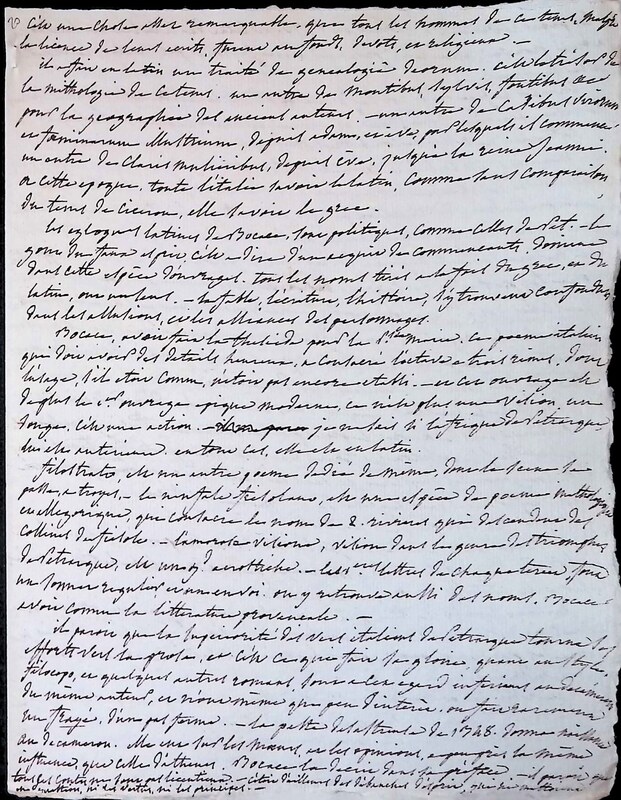 C'est une chose assez remarquable, que tous les hommes de ce tems, malgré
la licence de leurs écrits, furent au fond, dévots, et religieux. —
il a fini en latin un traité de genealogiâ deorum, célèbre
la mithologie de ce tems. un autre de montibus, sylvis, fontibus &c
pour la géographie des anciens auteurs. — un autre de casibus virorum
et fœminarum illustrium, depuis adam, et ève, par lesquels il commence
un autre de claris mulieribus, depuis ève, jusqu'à la reine Jeanne.
or cette époque, toute l'italie savoit le latin, comme sans comparaison,
du tems de ciceron, elle savoit le grec.
Les eglogues latines de Bocace, sont politiques, comme celles de Pet. — le
goût du faux esprit c'est-à-dire d'un esprit de commençants, domine
dans cette espèce d'ouvrages. tous les noms tirés à la fois du grec, ou du
latin, ont un sens. — la fable, l'écriture, l'histoire, s'y trouvent confondues
dans les allusions, et les alliances des personnages.
Bocace, avoit fait la théséide pour la Psse marie. ce poeme italien
qui doit avoir des détails heureux, a consacré l'octave à trois rimes, dont
l'usage, s'il étoit connu, n'étoit pas encore établi. — et cet ouvrage est
de plus le 1er ouvrage épique moderne, ce n'est plus, une vision, un
songe, c'est une action. — je ne sais si l'afrique de Pétrarque
lui est antérieure. en tout cas, elle est en latin.
filostrato, est un autre poeme dédié de même, dont la scene se
passe, à troye. — le ninfale fiesolano, est une espèce de poeme mithologique
et allégorique, qui consacre le nom de 2. rivieres qui descendent des
collines de fiésole. — l'amorosa visione, vision dans le genre des triomphes
de Pétrarque, est un gd. acrostiche. — les 1ères lettres de chaque tercet, font
un sonnet régulier et un envoi. on y retrouve aussi des noms. Bocace
avoit connu la littérature provençale. —
il paroit que la supériorité des vers italiens de Pétrarque tourna ses
efforts vers la prose, et c'est ce qui fait sa gloire, quant au style.
filocopo, et quelques autres romans, sont à cet égard inférieurs au décameron
du même auteur, et n'ont même que peu d'intérêt. on fait rarement
un trajet, d'un pas ferme. — la peste de l'affreuse de 1348. donna naissance
au decameron. elle eut sur les mœurs, et les opinions, à peu près la même
influence, que celle d'athenes. Bocace la décrit dans sa préface. — il paroit que
tous ses contes ne sont pas licentieux. —
ni des vertus, ni les principes. —